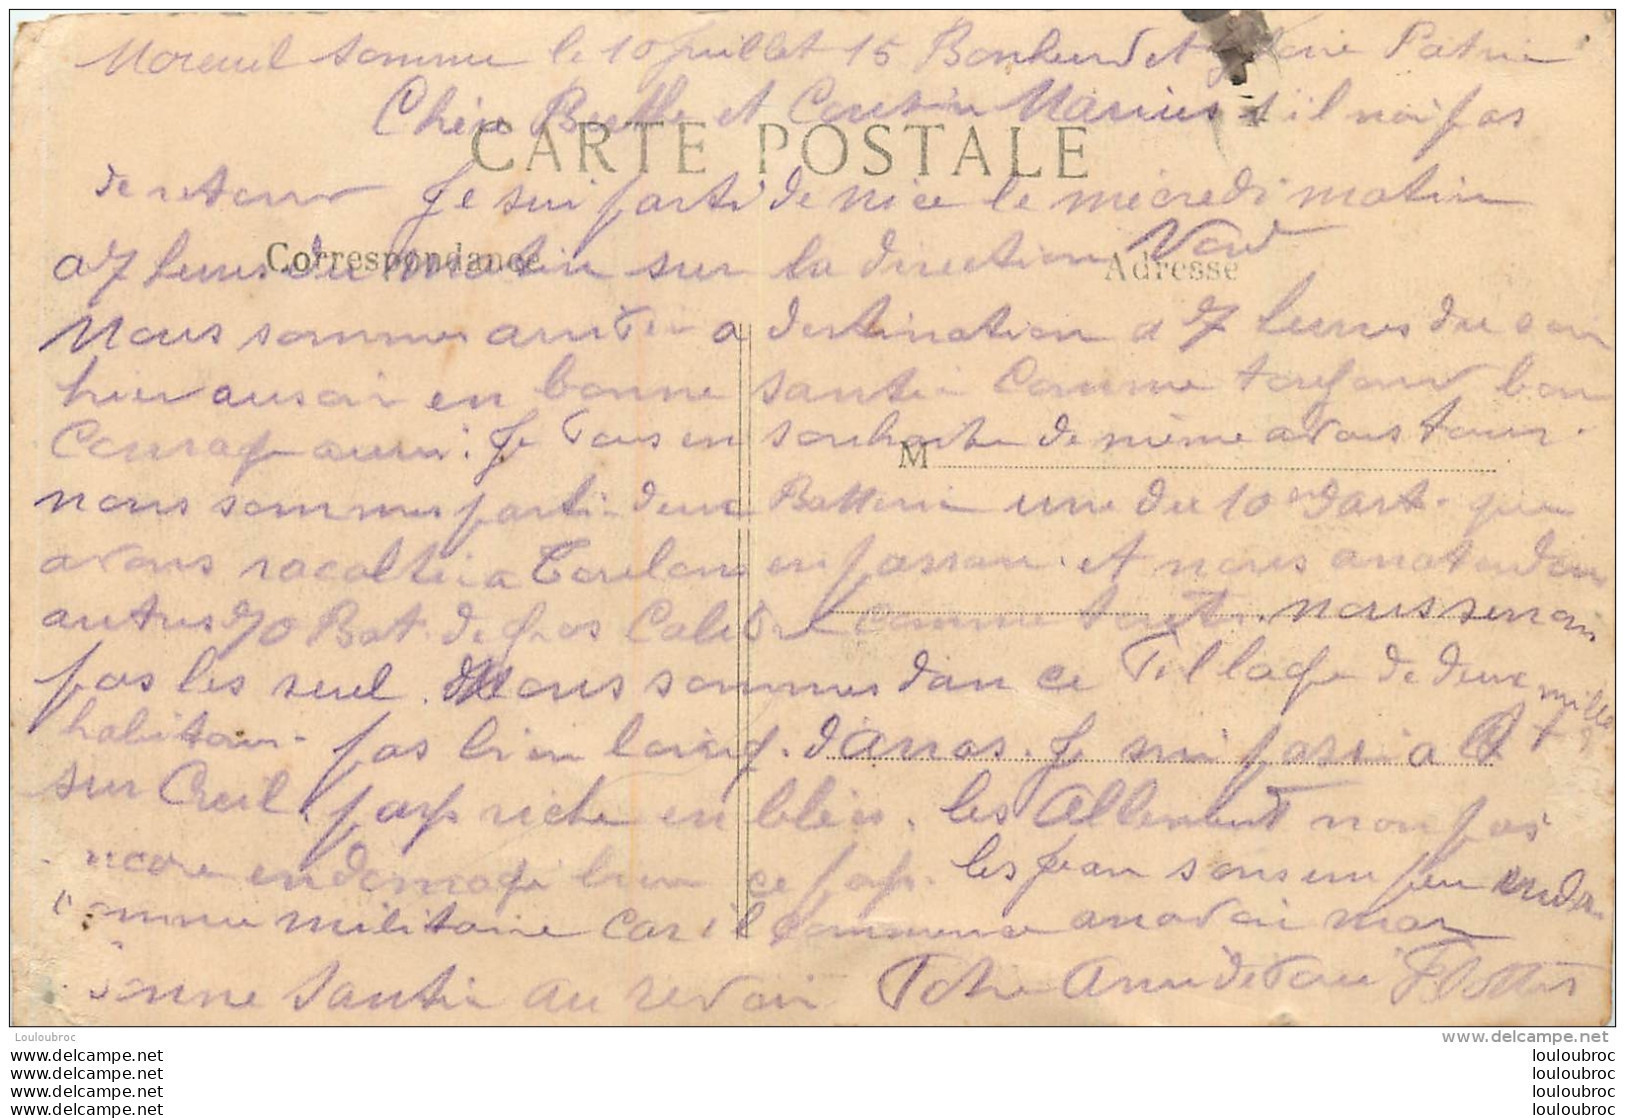 Moreuil Somme le 10 juillet 15 Bonheur et gloire Patrie
Chère Berthe et Cousin Marius s'il noi pas
CARTE POSTALE
de retour Je sui parti de nice le mecredi matin
Correspondance
Adresse
a 7 heures du matin sur la direction Nord
Nous sommes arriver a destination a 7 heures du soir
hier au soir en bonne santé Comme toujour bon
Courage aussi. Je vous en souhaite de même a vous tous.
M
nous sommes parti deux Batterie une du 10e d'art. que
avons racolté a Toulon en passan. et nous anatendon
autres 70 Bat. de gros Calibre comme toute. nous seron
pas les seul. Nous sommes dan ce village de deux mille
habitan. pas bien loing. d'arras. Je sui passé a
sur Creil. pays riche en blés. les Allemant non pas
ncore endomagé bien ce pays. les jean sons un peu
omme militaire car il commence anavoir mar
bonne santé au revoir Votre Ami devoué
Louloubroc
www.delcampe.net
www.delcampe.net
www.delcampe.net
www.delcampe.net
www.delcampe.net
louloubroc
louloubroc
louloubroc
louloubroc